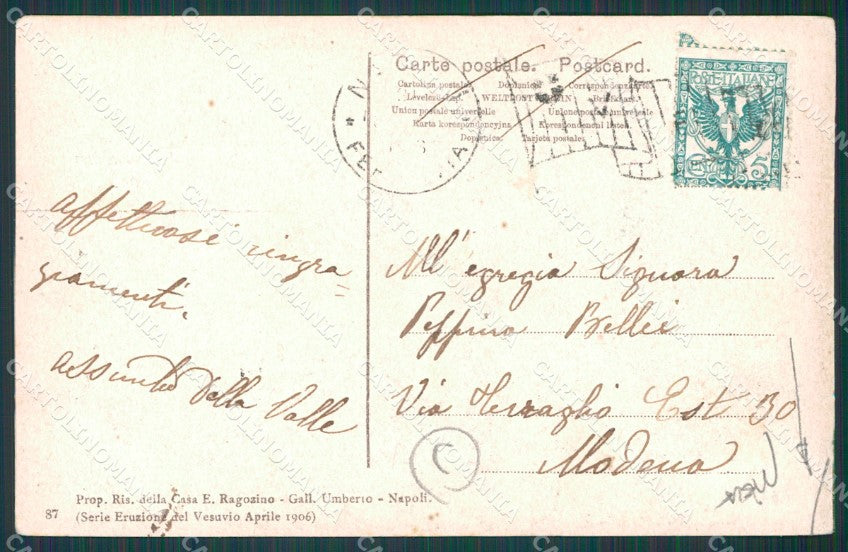 Carte postale. Postcard.
Cartolina postale Dopisnice Correspondenzkarte
Levelezőlap. WELTPOSTVEREIN Brefkaart.
Union postale universelle Unione postale universale
Karta korespondencyjna Korespondenční lístek.
Dopisnica. Tarjeta postale.
POSTE ITALIANE
C. 5
affettuosi ringra=
ziamenti.
Assunta Della Valle
All'egregia Signora
Peppina Bellei
Via Terraglio Est 30
Modena
Prop. Ris. della Casa E. Ragozino - Gall. Umberto - Napoli.
87 (Serie Eruzione del Vesuvio Aprile 1906)
CARTOLINOMANIA